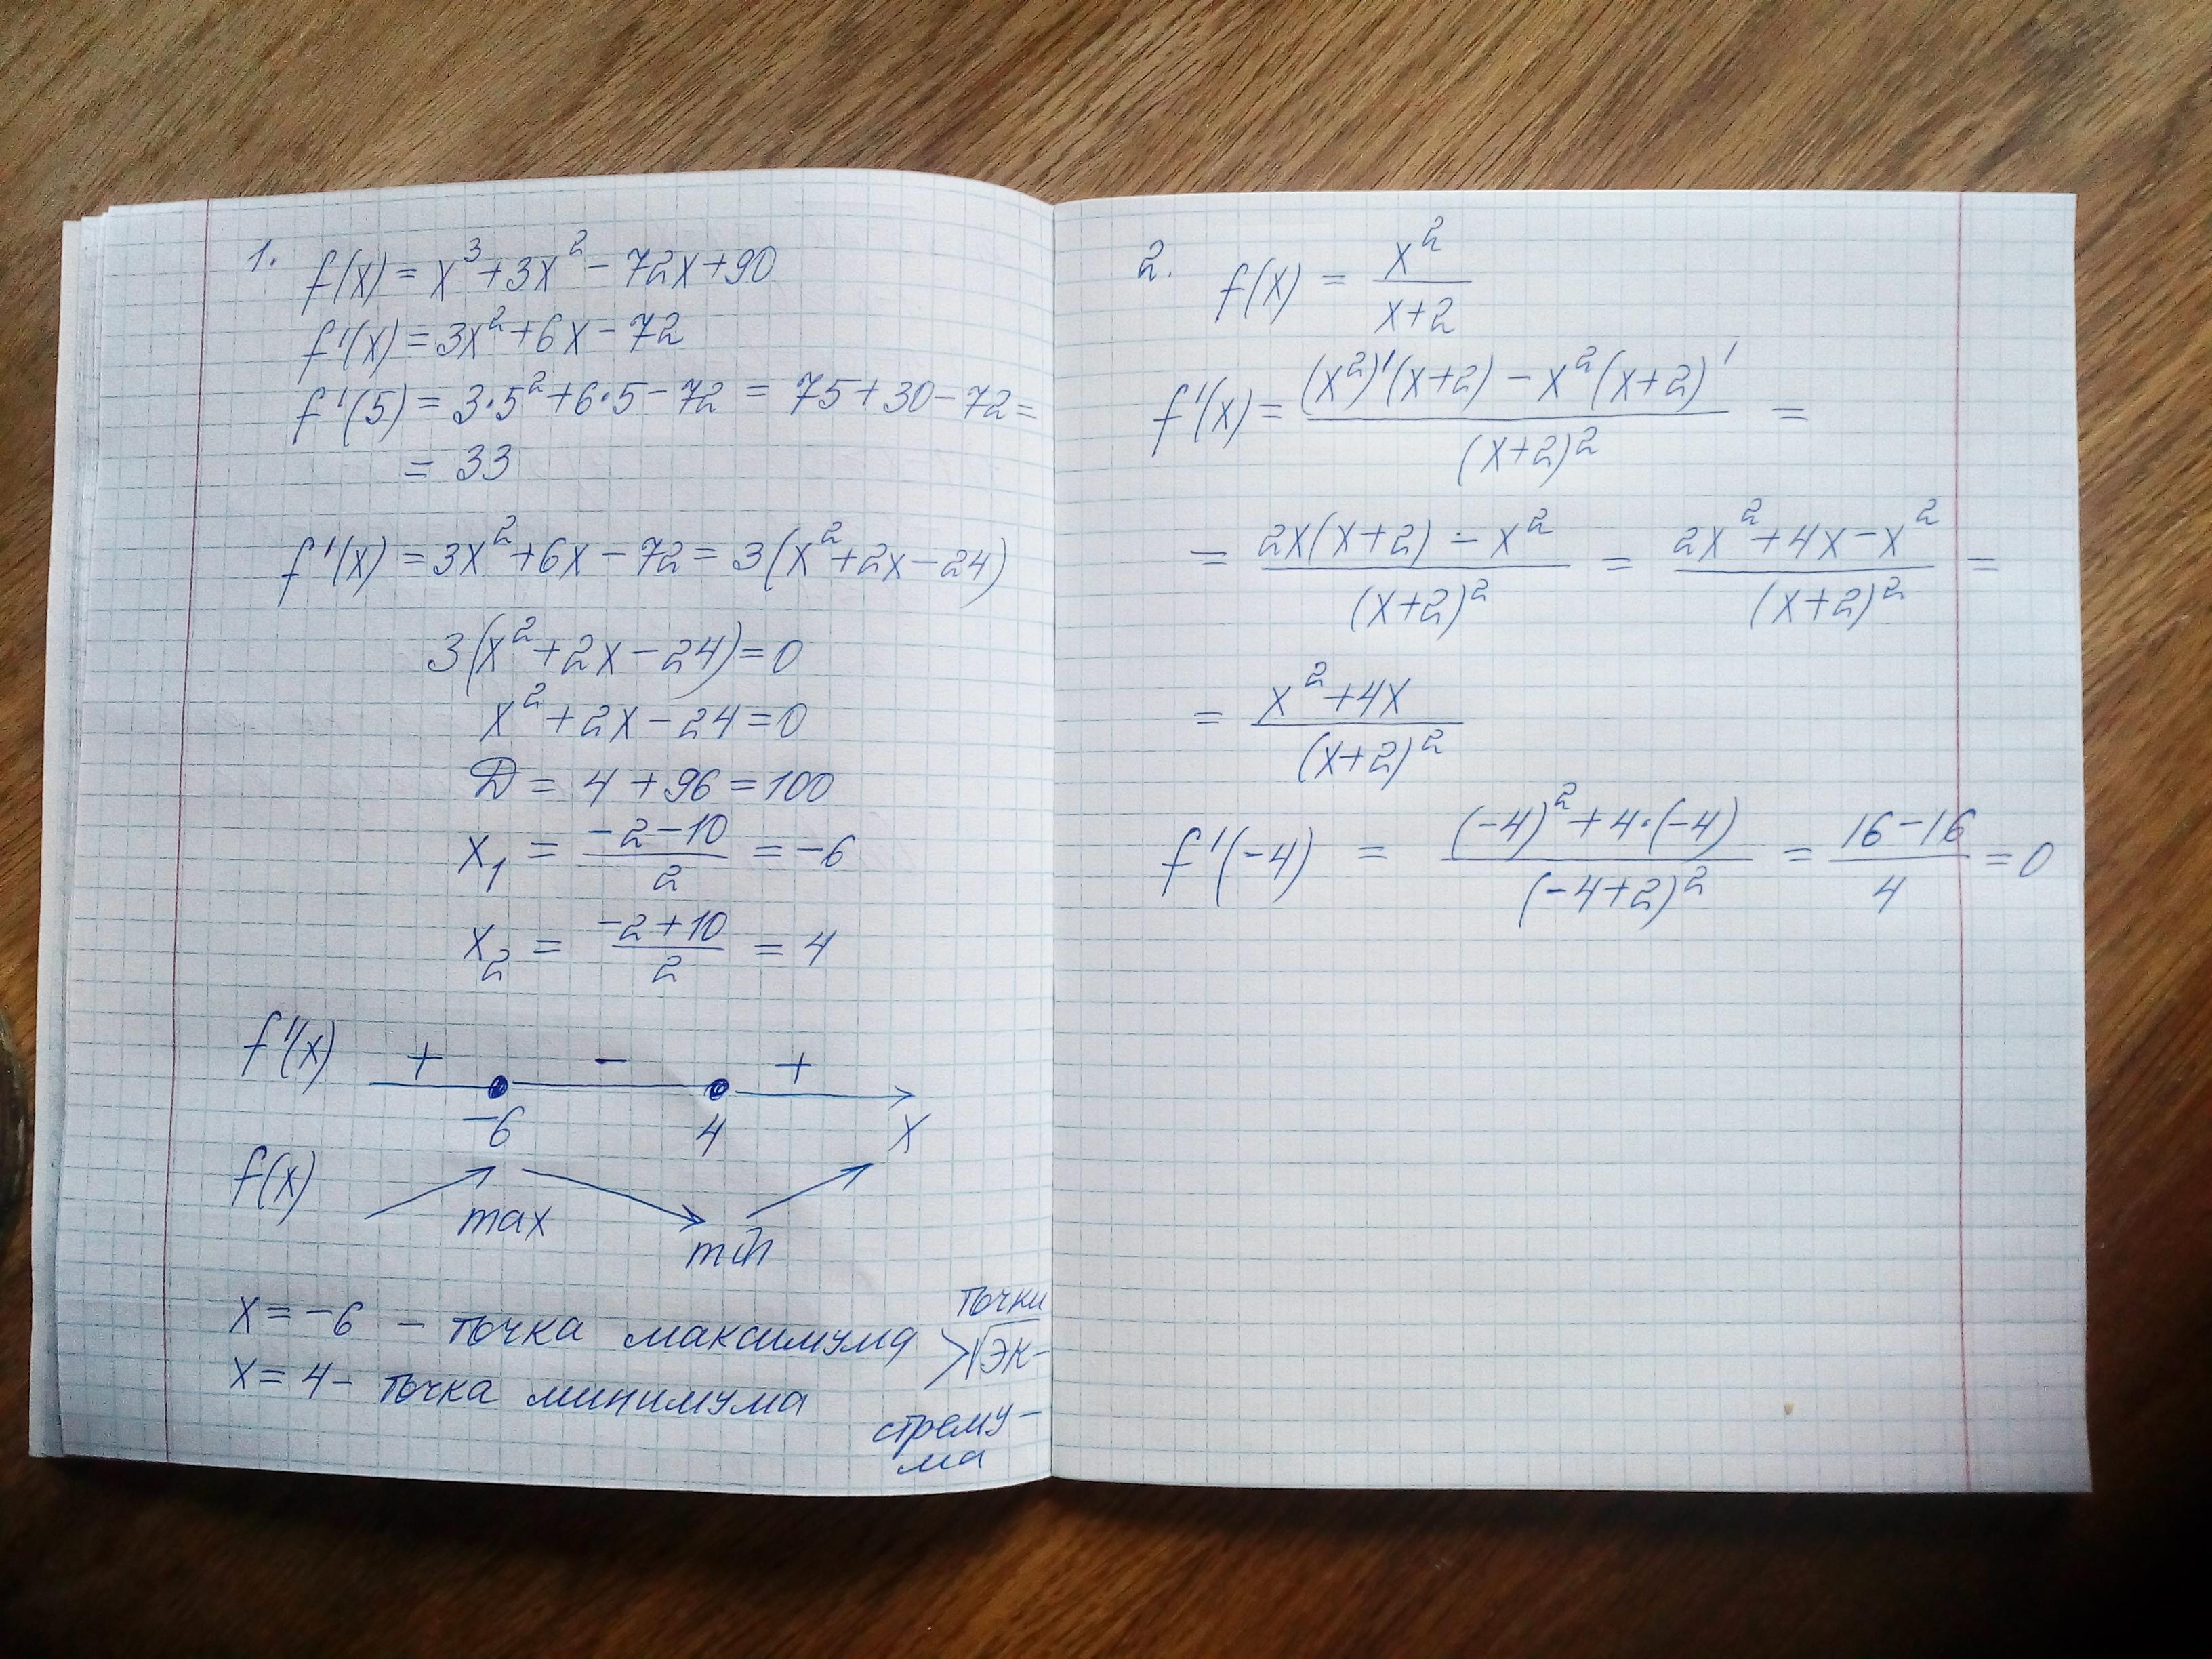 1. f(x) = x³ + 3x² − 72x + 90
f'(x) = 3x² + 6x − 72
f'(5) = 3·5² + 6·5 − 72 = 75 + 30 − 72 =
= 33
f'(x) = 3x² + 6x − 72 = 3(x² + 2x − 24)
3(x² + 2x − 24) = 0
x² + 2x − 24 = 0
D = 4 + 96 = 100
x₁ = (−2−10)/2 = −6
x₂ = (−2+10)/2 = 4
f'(x) + − +
−6 4 x
f(x)
max min
x = −6 − точка максимума
x = 4 − точка минимума
точки
эк-
стрему-
ма
2. f(x) = x²/(x+2)
f'(x) = ((x²)'(x+2) − x²(x+2)')/(x+2)² =
= (2x(x+2) − x²)/(x+2)² = (2x² + 4x − x²)/(x+2)² =
= (x² + 4x)/(x+2)²
f'(−4) = ((−4)² + 4·(−4))/(−4+2)² = (16−16)/4 = 0